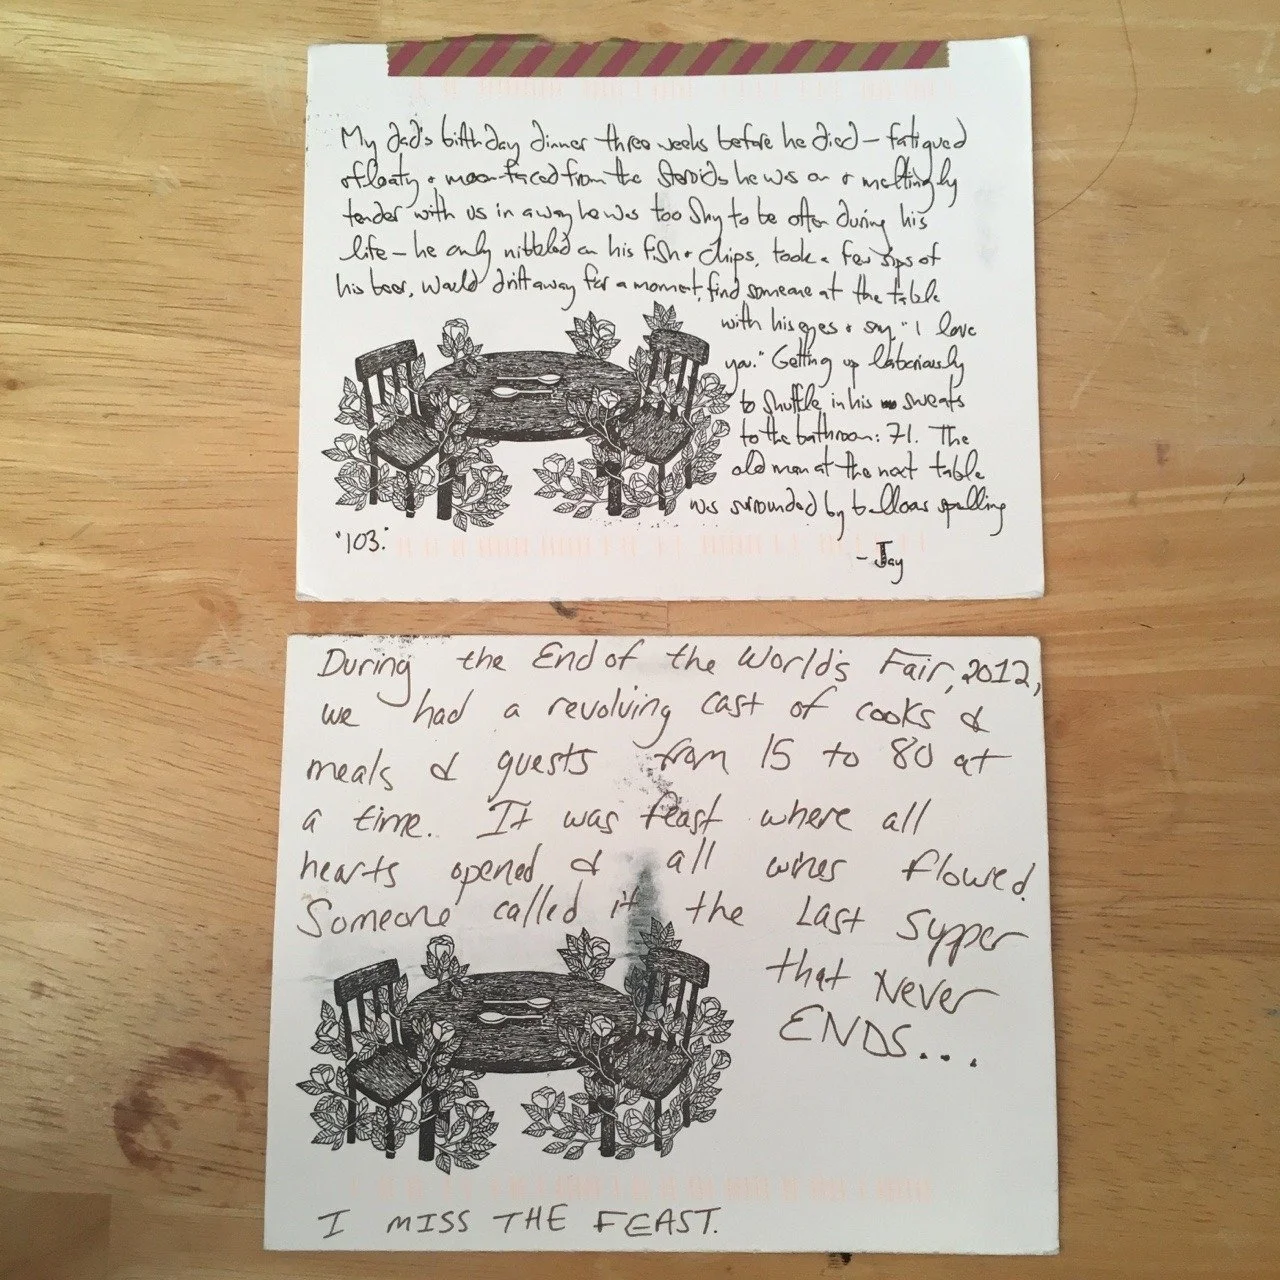 My dad's birthday dinner three weeks before he died – fatigued
& floaty & moon-faced from the steroids he was on & meltingly
tender with us in a way he was too shy to be often during his
life – he only nibbled on his fish & chips, took a few sips of
his beer, would drift away for a moment, find someone at the table
with his eyes & say "I love
you." Getting up laboriously
to shuffle in his sweats
to the bathroom: 71. The
old man at the next table
was surrounded by balloons spelling
"103."
– Jay
During the End of the World's Fair, 2012,
we had a revolving cast of cooks &
meals & guests from 15 to 80 at
a time. It was feast where all
hearts opened & all wines flowed.
Someone called it the Last Supper
that Never
ENDS...
I MISS THE FEAST.